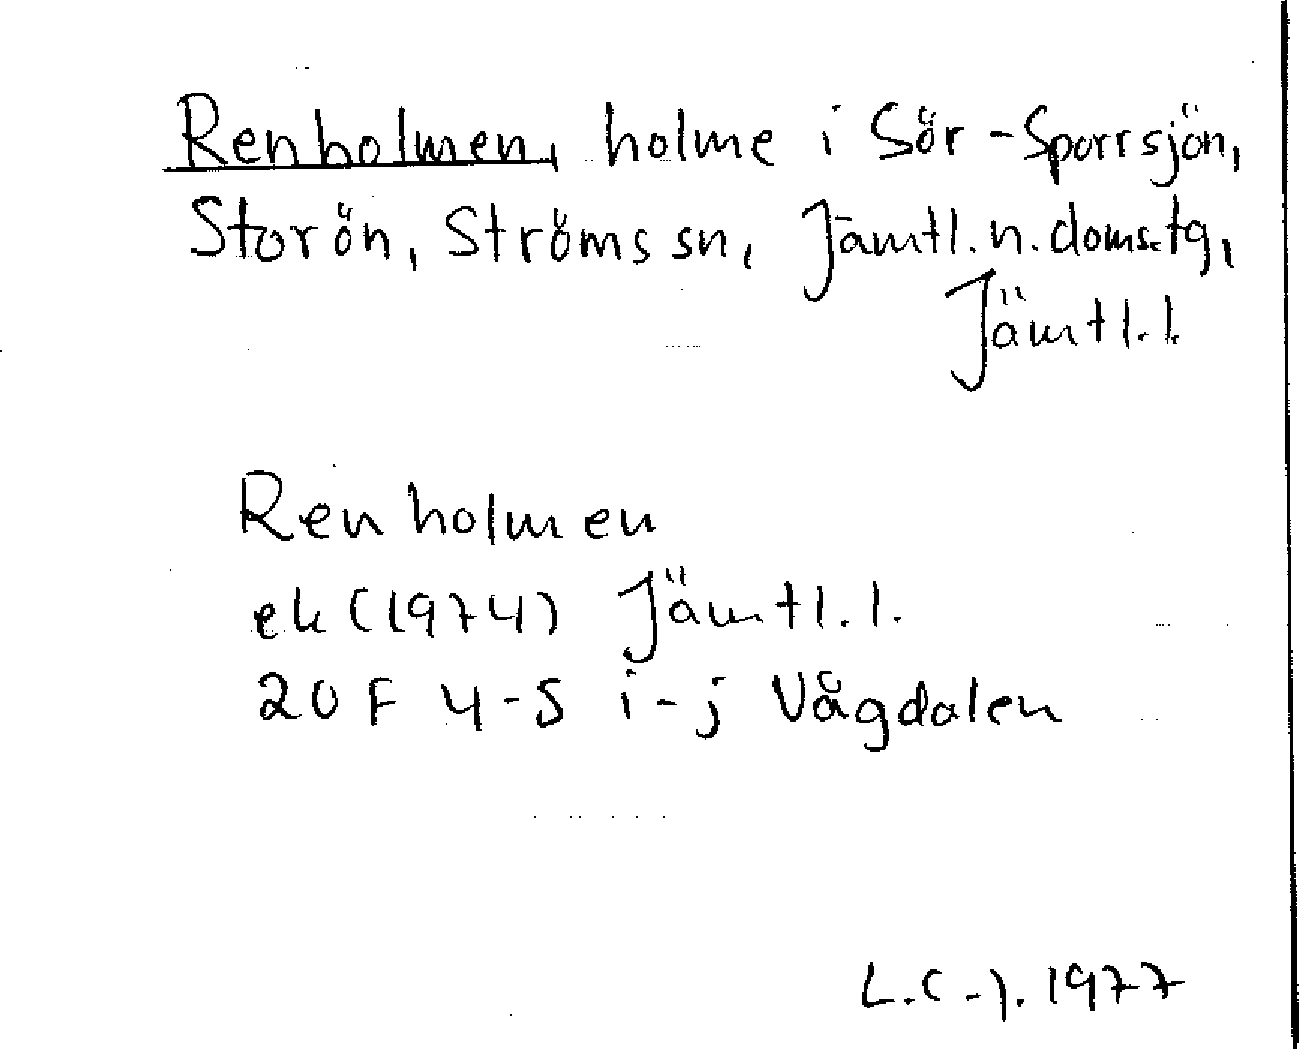 Renholmen, holme i Sör-Sporrsjön,
Storön, Ströms sn, Jämtl. n. domstg,
Jämtl. l.
Renholmen
ek (1974) Jämtl. l.
20 F 4-5 i-j Vågdalen
L.C-J. 1977